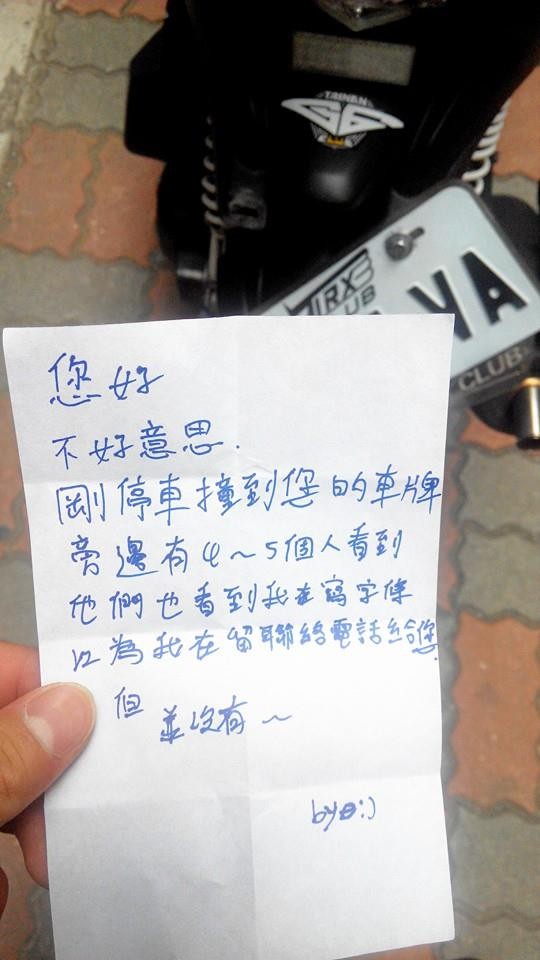 TAINAN
ZIRX
CLUB
VA
CLUB
您好
不好意思.
剛停車撞到您的車牌
旁邊有4～5個人看到
他們也看到我在寫字條
以為我在留聯絡電話給您.
但
並沒有～
by
:)